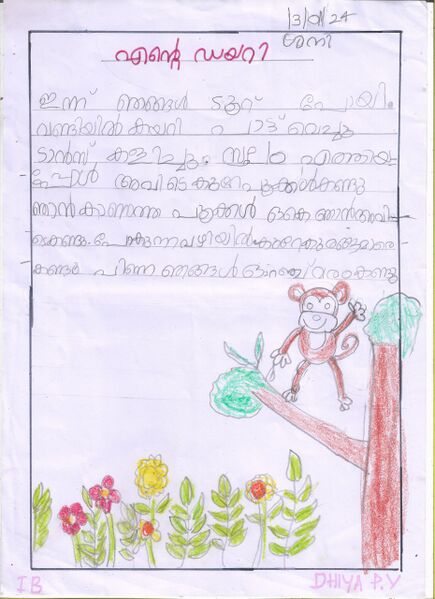 13/01/24
ശനി
എന്റെ ഡയറി
ഇന്ന് ഞങ്ങൾ ടൂറ് പോയി.
വണ്ടിയിൽ കയറി പാട്ട് വെച്ചു
ടാൻസ് കളിച്ചു. സ്ഥലം എത്തിയ-
പ്പോൾ അവിടെ കുറേ പൂക്കൾ കണ്ടു
ഞാൻ കാണാത്ത പൂക്കൾ ഒക്കെ ഞാൻ അവി-
ടെ കണ്ടു. പോകുന്ന വഴിയിൽ കുറേ കുരങ്ങുമാരെ
കണ്ടു. പിന്നെ ഞങ്ങൾ ഓറഞ്ച് മരം കണ്ടു
I B
DHIYA P.V